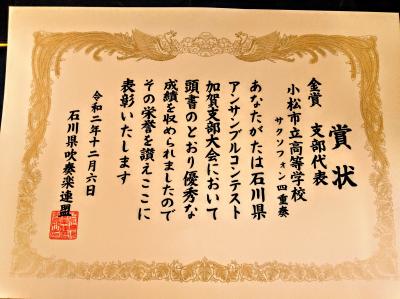 賞状
金賞 支部代表
小松市立高等学校
サクソフォン四重奏
あなたがたは石川県
アンサンブルコンテスト
加賀支部大会において
頭書のとおり優秀な
成績を収められましたので
その栄誉を讃えここに
表彰いたします
令和二年十二月六日
石川県吹奏楽連盟